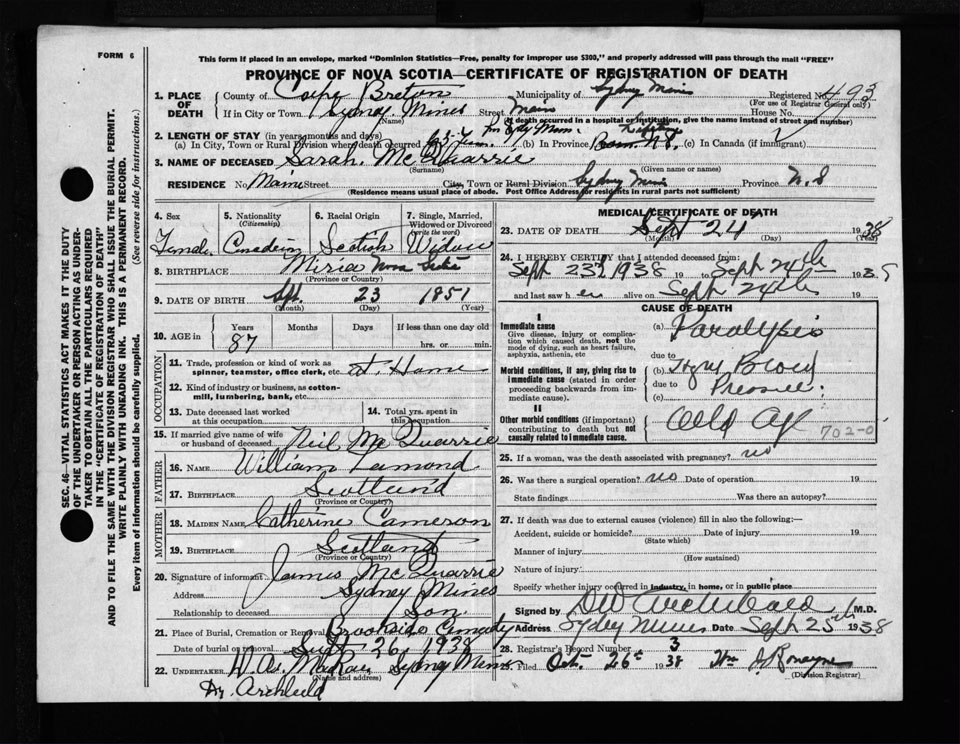 FORM 6
This form if placed in an envelope, marked "Dominion Statistics—Free, penalty for improper use $300," and properly addressed will pass through the mail "FREE"
PROVINCE OF NOVA SCOTIA—CERTIFICATE OF REGISTRATION OF DEATH
SEC. 46—VITAL STATISTICS ACT MAKES IT THE DUTY
OF THE UNDERTAKER OR PERSON ACTING AS UNDER-
TAKER TO OBTAIN ALL THE PARTICULARS REQUIRED
IN THE "CERTIFICATE OF REGISTRATION OF DEATH"
AND TO FILE THE SAME WITH THE DIVISION REGISTRAR WHO SHALL ISSUE THE BURIAL PERMIT.
WRITE PLAINLY WITH UNFADING INK. THIS IS A PERMANENT RECORD.
Every item of information should be carefully supplied. (See reverse side for instructions.)
1. PLACE OF DEATH
County of Cape Breton Municipality of Sydney Mines Registered No. 493
(For use of Registrar General only)
If in City or Town Sydney Mines Street Main House No.
(Name) (If death occurred in a hospital or institution, give the name instead of street and number)
2. LENGTH OF STAY (in years, months and days)
(a) In City, Town or Rural Division where death occurred (b) In Province (c) In Canada (if immigrant)
3. NAME OF DECEASED Sarah McQuarrie
(Surname) (Given name or names)
RESIDENCE No. Main Street City, Town or Rural Division Sydney Mines Province N.S
(Residence means usual place of abode. Post Office Address for residents in rural parts not sufficient)
4. Sex Female
5. Nationality (Citizenship) Canadian
6. Racial Origin Scotish
7. Single, Married, Widowed or Divorced (write the word) Widow
8. BIRTHPLACE Miria Nova Scotia
(Province or Country)
9. DATE OF BIRTH Sept. 23 1851
(Month) (Day) (Year)
10. AGE in Years 87 Months Days If less than one day old hrs. or min.
OCCUPATION
11. Trade, profession or kind of work as spinner, teamster, office clerk, etc. at Home
12. Kind of industry or business, as cotton-mill, lumbering, bank, etc.
13. Date deceased last worked at this occupation
14. Total yrs. spent in this occupation
15. If married give name of wife or husband of deceased Neil McQuarrie
FATHER
16. NAME William Lamond
17. BIRTHPLACE Scotland
(Province or Country)
MOTHER
18. MAIDEN NAME Catherine Cameron
19. BIRTHPLACE Scotland
(Province or Country)
20. Signature of informant James McQuarrie
Address Sydney Mines
Relationship to deceased Son
21. Place of Burial, Cremation or Removal Brookside Cemetery
Date of burial or removal Sept 26, 1938
22. UNDERTAKER Sydney Mines
(Name and address)
MEDICAL CERTIFICATE OF DEATH
23. DATE OF DEATH Sept 24 1938
(Month) (Day)
24. I HEREBY CERTIFY that I attended deceased from:
Sept 23d 1938 19 to Sept 24th 1938
and last saw her alive on Sept 24th 19
CAUSE OF DEATH
I
Immediate cause
Give disease, injury or complication which caused death, not the mode of dying, such as heart failure, asphyxia, asthenia, etc
(a) Paralysis
due to
Morbid conditions, if any, giving rise to immediate cause (stated in order proceeding backwards from immediate cause).
(b) High Blood
due to Pressure
(c)
II
Other morbid conditions (if important) contributing to death but not causally related to immediate cause.
Old Age 702-0
25. If a woman, was the death associated with pregnancy? no
26. Was there a surgical operation? no Date of operation 19
State findings Was there an autopsy?
27. If death was due to external causes (violence) fill in also the following:—
Accident, suicide or homicide? Date of injury 19
(State which)
Manner of injury
(How sustained)
Nature of injury
Specify whether injury occurred in industry, in home, or in public place
Signed by Archibald M.D.
Address Sydney Mines Date Sept 25th 1938
28. Registrar's Record Number 3
Filed Oct. 26th 1938
(Division Registrar)